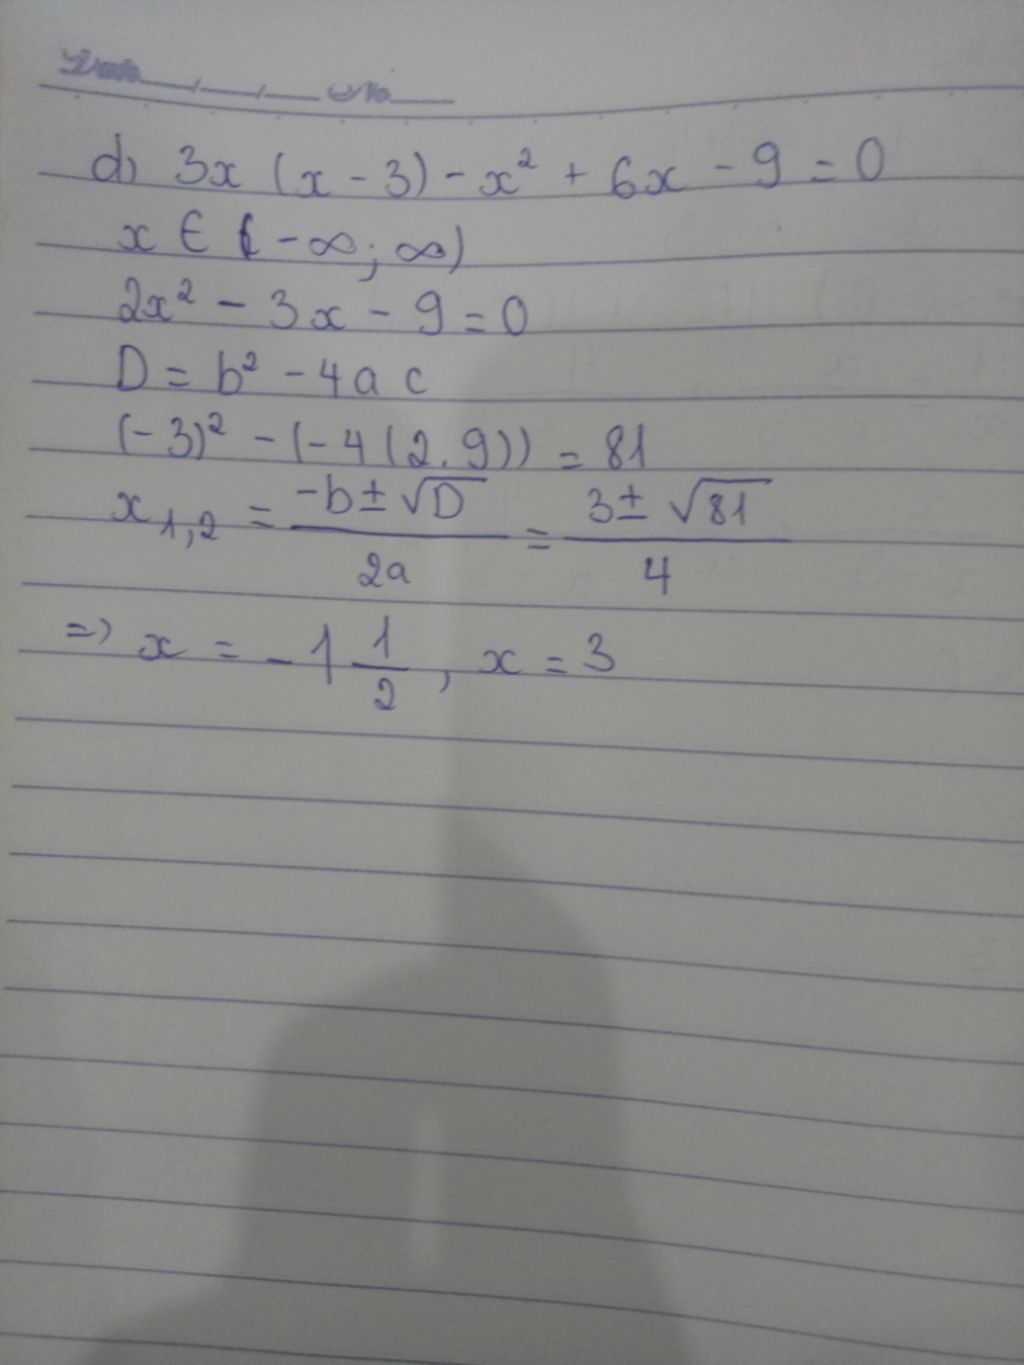 Date / / No
d) 3x (x - 3) - x² + 6x - 9 = 0
x ∈ (-∞; ∞)
2x² - 3x - 9 = 0
D = b² - 4ac
(-3)² - (-4(2.9)) = 81
x₁,₂ = (-b ± √D)/(2a) = (3 ± √81)/4
=> x = -1 1/2, x = 3